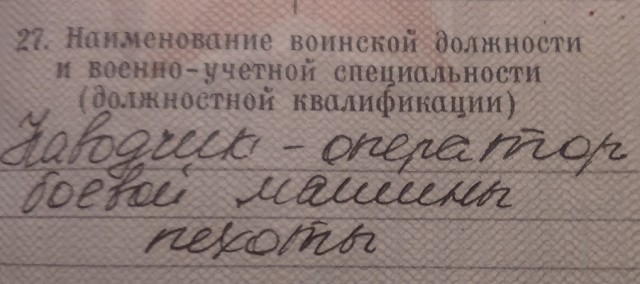 27. Наименование воинской должности
и военно-учетной специальности
(должностной квалификации)
Наводчик - оператор
боевой машины
пехоты